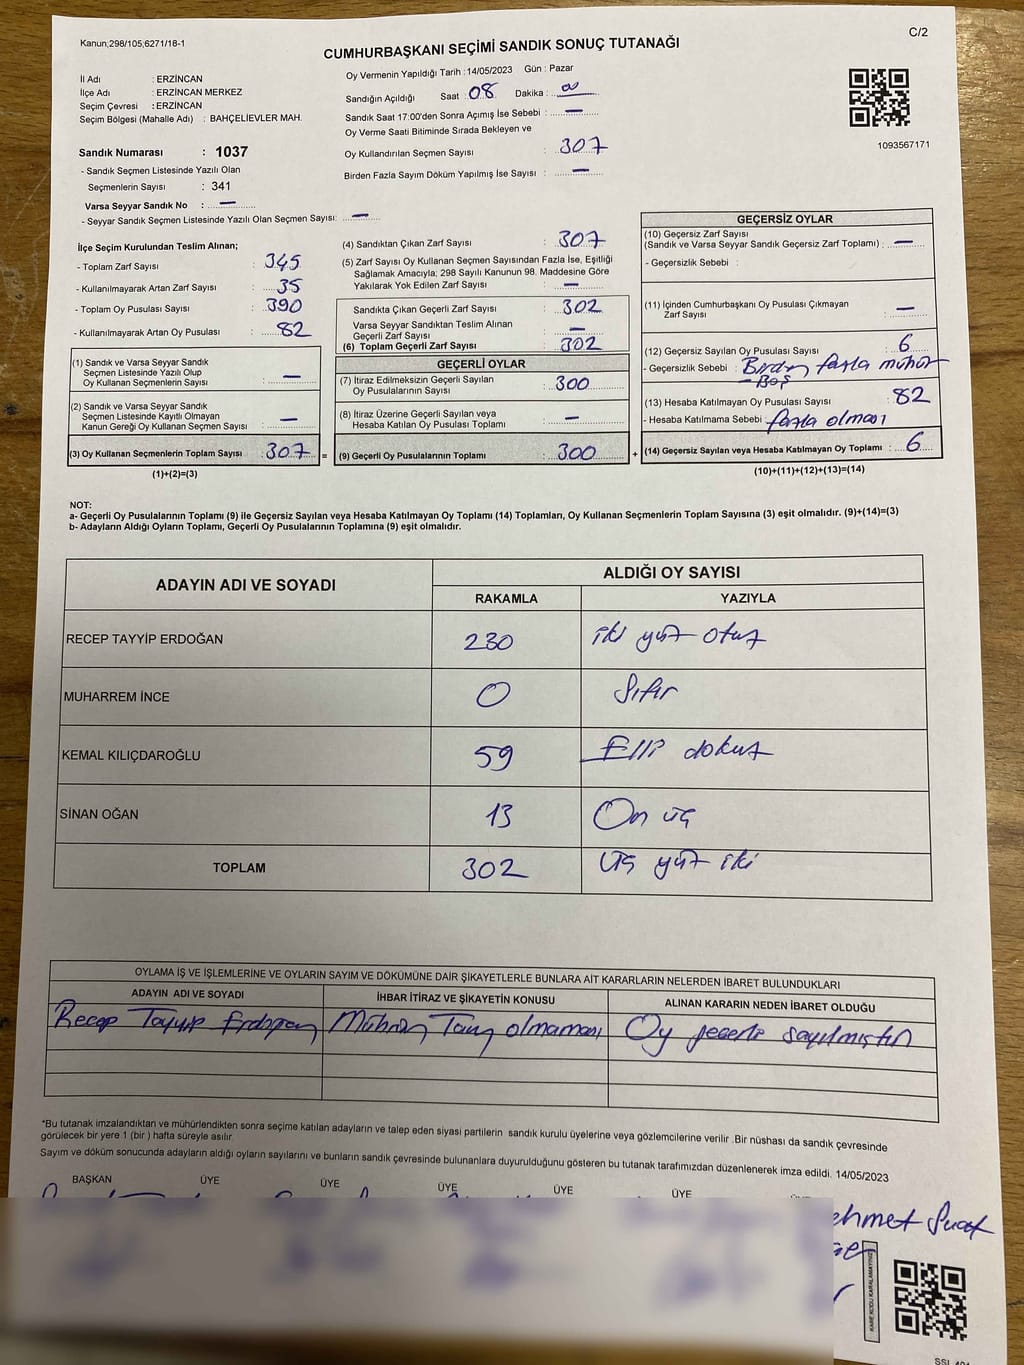 Kanun;298/105;6271/18-1
C/2
CUMHURBAŞKANI SEÇİMİ SANDIK SONUÇ TUTANAĞI
İl Adı : ERZİNCAN
İlçe Adı : ERZİNCAN MERKEZ
Seçim Çevresi : ERZİNCAN
Seçim Bölgesi (Mahalle Adı) : BAHÇELİEVLER MAH.
Sandık Numarası : 1037
- Sandık Seçmen Listesinde Yazılı Olan
Seçmenlerin Sayısı : 341
Varsa Seyyar Sandık No : —
- Seyyar Sandık Seçmen Listesinde Yazılı Olan Seçmen Sayısı: —
Oy Vermenin Yapıldığı Tarih : 14/05/2023 Gün : Pazar
Sandığın Açıldığı Saat : 08 Dakika : 00
Sandık Saat 17:00'den Sonra Açımış İse Sebebi : —
Oy Verme Saati Bitiminde Sırada Bekleyen ve
Oy Kullandırılan Seçmen Sayısı : 307
Birden Fazla Sayım Döküm Yapılmış İse Sayısı : —
1093567171
İlçe Seçim Kurulundan Teslim Alınan;
- Toplam Zarf Sayısı : 345
- Kullanılmayarak Artan Zarf Sayısı : 35
- Toplam Oy Pusulası Sayısı : 390
- Kullanılmayarak Artan Oy Pusulası : 82
(1) Sandık ve Varsa Seyyar Sandık
Seçmen Listesinde Yazılı Olup
Oy Kullanan Seçmenlerin Sayısı : —
(2) Sandık ve Varsa Seyyar Sandık
Seçmen Listesinde Kayıtlı Olmayan
Kanun Gereği Oy Kullanan Seçmen Sayısı : —
(3) Oy Kullanan Seçmenlerin Toplam Sayısı : 307 =
(1)+(2)=(3)
(4) Sandıktan Çıkan Zarf Sayısı : 307
(5) Zarf Sayısı Oy Kullanan Seçmen Sayısından Fazla İse, Eşitliği
Sağlamak Amacıyla; 298 Sayılı Kanunun 98. Maddesine Göre
Yakılarak Yok Edilen Zarf Sayısı : —
Sandıkta Çıkan Geçerli Zarf Sayısı : 302
Varsa Seyyar Sandıktan Teslim Alınan
Geçerli Zarf Sayısı : —
(6) Toplam Geçerli Zarf Sayısı : 302
GEÇERLİ OYLAR
(7) İtiraz Edilmeksizin Geçerli Sayılan
Oy Pusulalarının Sayısı : 300
(8) İtiraz Üzerine Geçerli Sayılan veya
Hesaba Katılan Oy Pusulası Toplamı : —
(9) Geçerli Oy Pusulalarının Toplamı : 300 +
GEÇERSİZ OYLAR
(10) Geçersiz Zarf Sayısı
(Sandık ve Varsa Seyyar Sandık Geçersiz Zarf Toplamı) : —
- Geçersizlik Sebebi :
(11) İçinden Cumhurbaşkanı Oy Pusulası Çıkmayan
Zarf Sayısı : —
(12) Geçersiz Sayılan Oy Pusulası Sayısı : 6
- Geçersizlik Sebebi : Birden fazla mühür
- Boş
(13) Hesaba Katılmayan Oy Pusulası Sayısı : 82
- Hesaba Katılmama Sebebi : fazla olması
(14) Geçersiz Sayılan veya Hesaba Katılmayan Oy Toplamı : 6
(10)+(11)+(12)+(13)=(14)
NOT:
a- Geçerli Oy Pusulalarının Toplamı (9) ile Geçersiz Sayılan veya Hesaba Katılmayan Oy Toplamı (14) Toplamları, Oy Kullanan Seçmenlerin Toplam Sayısına (3) eşit olmalıdır. (9)+(14)=(3)
b- Adayların Aldığı Oyların Toplamı, Geçerli Oy Pusulalarının Toplamına (9) eşit olmalıdır.
ADAYIN ADI VE SOYADI ALDIĞI OY SAYISI
RAKAMLA YAZIYLA
RECEP TAYYİP ERDOĞAN 230 iki yüz otuz
MUHARREM İNCE 0 Sıfır
KEMAL KILIÇDAROĞLU 59 Elli dokuz
SİNAN OĞAN 13 On üç
TOPLAM 302 Üç yüz iki
OYLAMA İŞ VE İŞLEMLERİNE VE OYLARIN SAYIM VE DÖKÜMÜNE DAİR ŞİKAYETLERLE BUNLARA AİT KARARLARIN NELERDEN İBARET BULUNDUKLARI
ADAYIN ADI VE SOYADI İHBAR İTİRAZ VE ŞİKAYETİN KONUSU ALINAN KARARIN NEDEN İBARET OLDUĞU
Recep Tayyip Erdoğan Mührün Tam olmaması Oy geçerli sayılmıştır
*Bu tutanak imzalandıktan ve mühürlendikten sonra seçime katılan adayların ve talep eden siyasi partilerin sandık kurulu üyelerine veya gözlemcilerine verilir .Bir nüshası da sandık çevresinde
görülecek bir yere 1 (bir ) hafta süreyle asılır.
Sayım ve döküm sonucunda adayların aldığı oyların sayılarını ve bunların sandık çevresinde bulunanlara duyurulduğunu gösteren bu tutanak tarafımızdan düzenlenerek imza edildi. 14/05/2023
BAŞKAN ÜYE ÜYE ÜYE ÜYE ÜYE
ehmet Suat
KARE KODU KARALAMAYINIZ